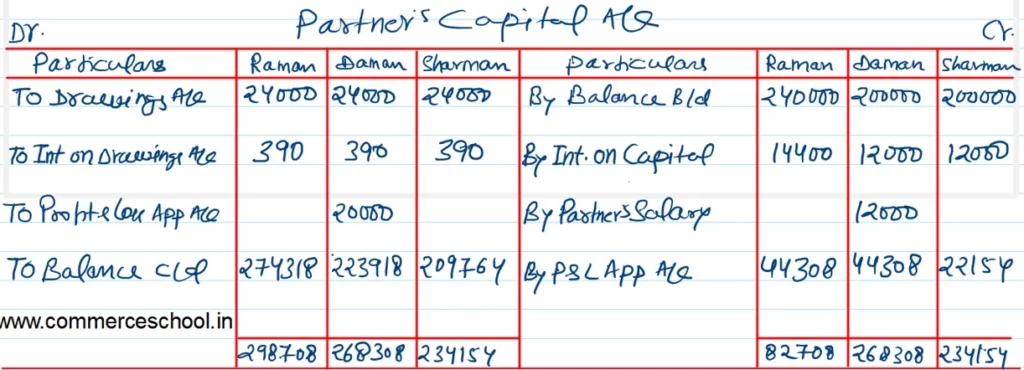 Partner's Capital A/c
Dr. Cr.
Particulars Raman Daman Sharman Particulars Raman Daman Sharman
To Drawings A/c 24000 24000 24000 By Balance B/d 240000 200000 200000
To Int on Drawings A/c 390 390 390 By Int. on Capital 14400 12000 12000
To Profit & Loss App A/c 20000 By Partner's Salary 12000
To Balance C/d 274318 223918 209764 By P&L App A/c 44308 44308 22154
www.commerceschool.in
298708 268308 234154 82708 268308 234154